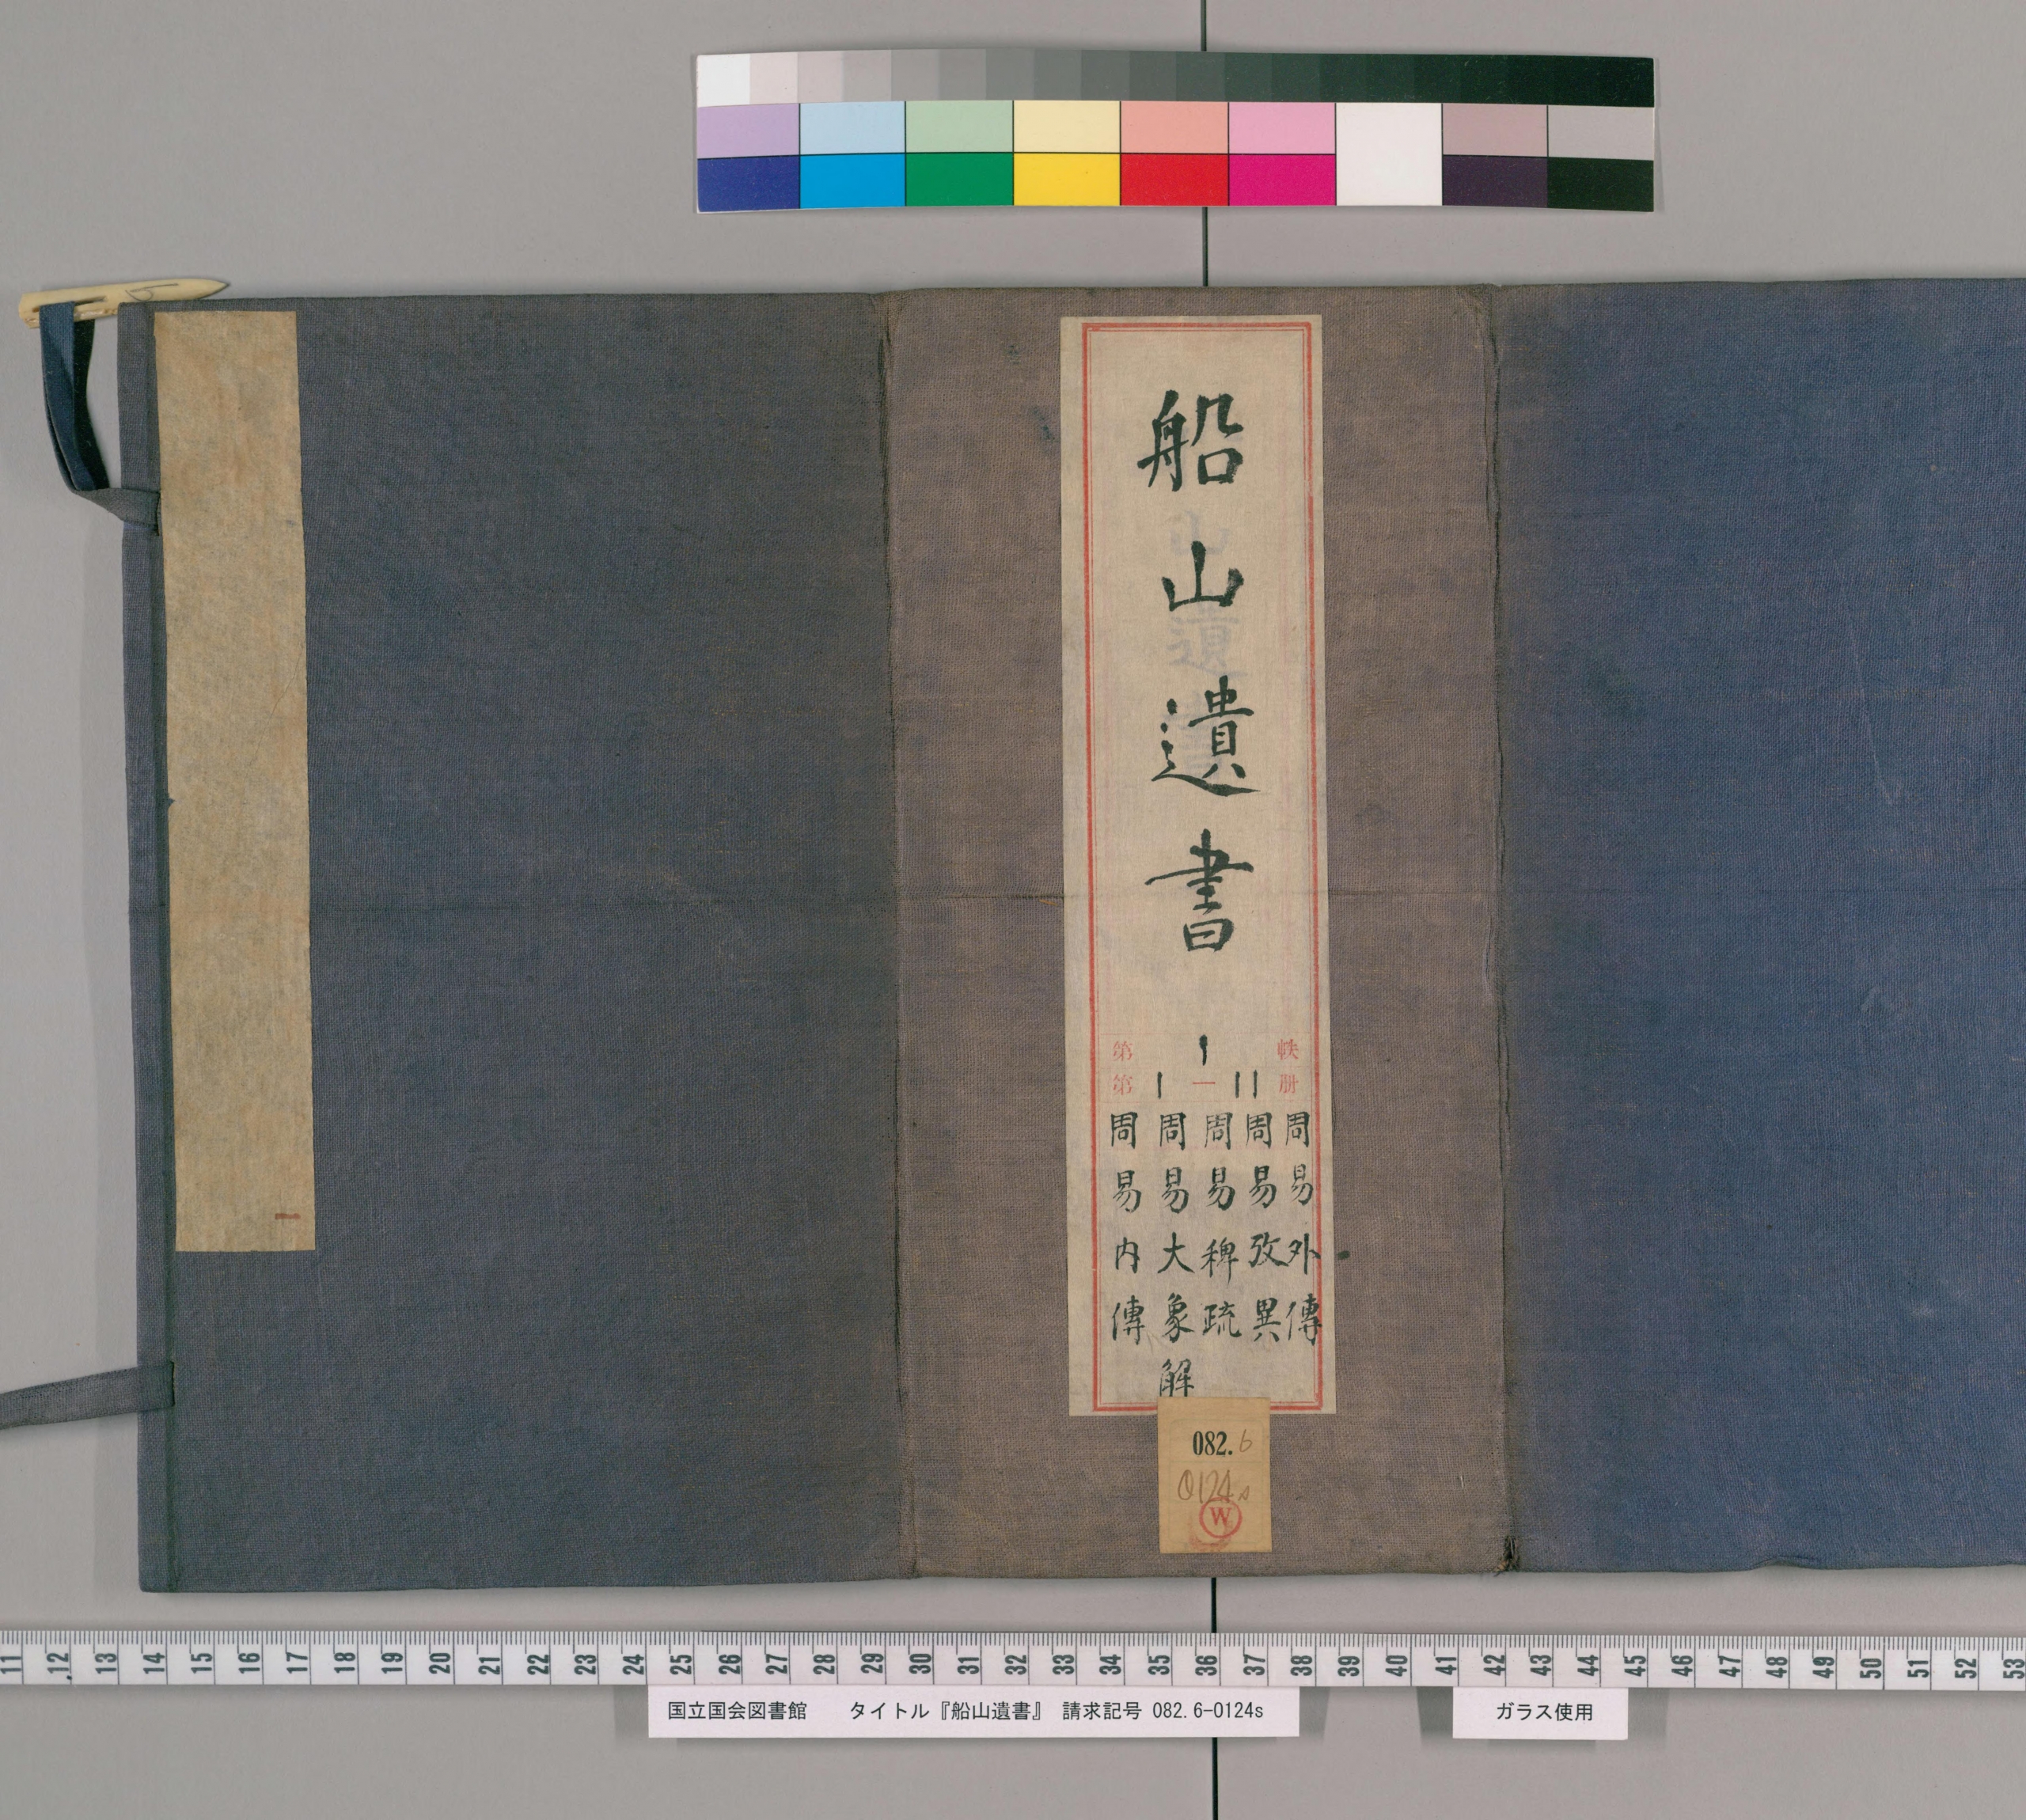 船山遺書
第1帙
第1一11册
周易内傳
周易大象解
周易稗疏
周易攷異
周易外傳
一
082.6
0124s
W
11 12 13 14 15 16 17 18 19 20 21 22 23 24 25 26 27 28 29 30 31 32 33 34 35 36 37 38 39 40 41 42 43 44 45 46 47 48 49 50 51 52 53
国立国会図書館 タイトル『船山遺書』 請求記号 082.6-0124s
ガラス使用